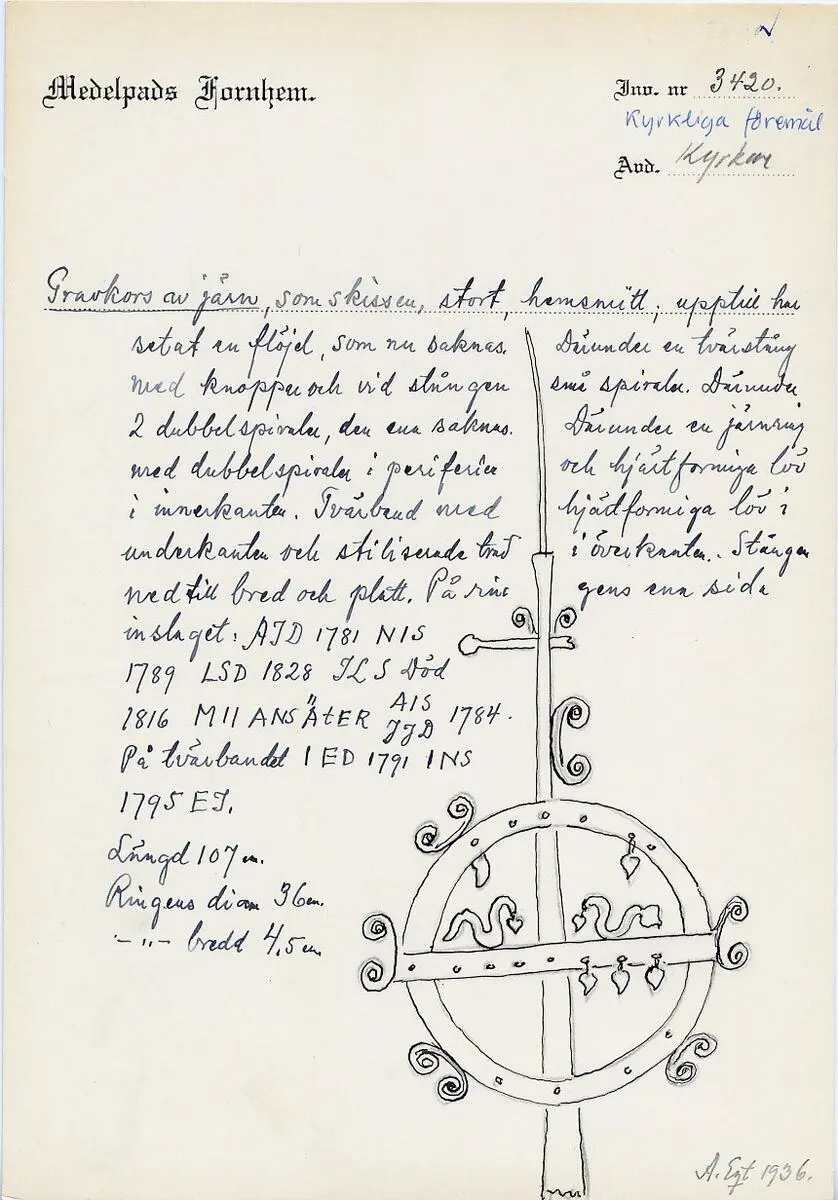 Medelpads Fornhem.
Inv. nr 3420.
Kyrkliga föremål
Avd. Kyrkan
Gravkors av järn, som skissen, stort, hemsmitt; upptill har
setat en flöjel, som nu saknas. Därunder en tvärstång
med knoppar och vid stången små spiraler. Därunder
2 dubbelspiraler, den ena saknas. Därunder en järnring
med dubbelspiraler i periferien och hjärtformiga löv
i innerkanten. Tvärband med hjärtformiga löv i
underkanten och stiliserade träd i överkanten. Stången
nedtill bred och platt. På ringens ena sida
inslaget: AJD 1781 NIS
1789 LSD 1828 JLS Död
1816 MII ANSÄTER AIS JJD 1784.
På tvärbandet IED 1791 INS
1795 EJ.
Längd 107 cm.
Ringens diam 36 cm.
–"– bredd 4,5 cm
A. Egt 1936.